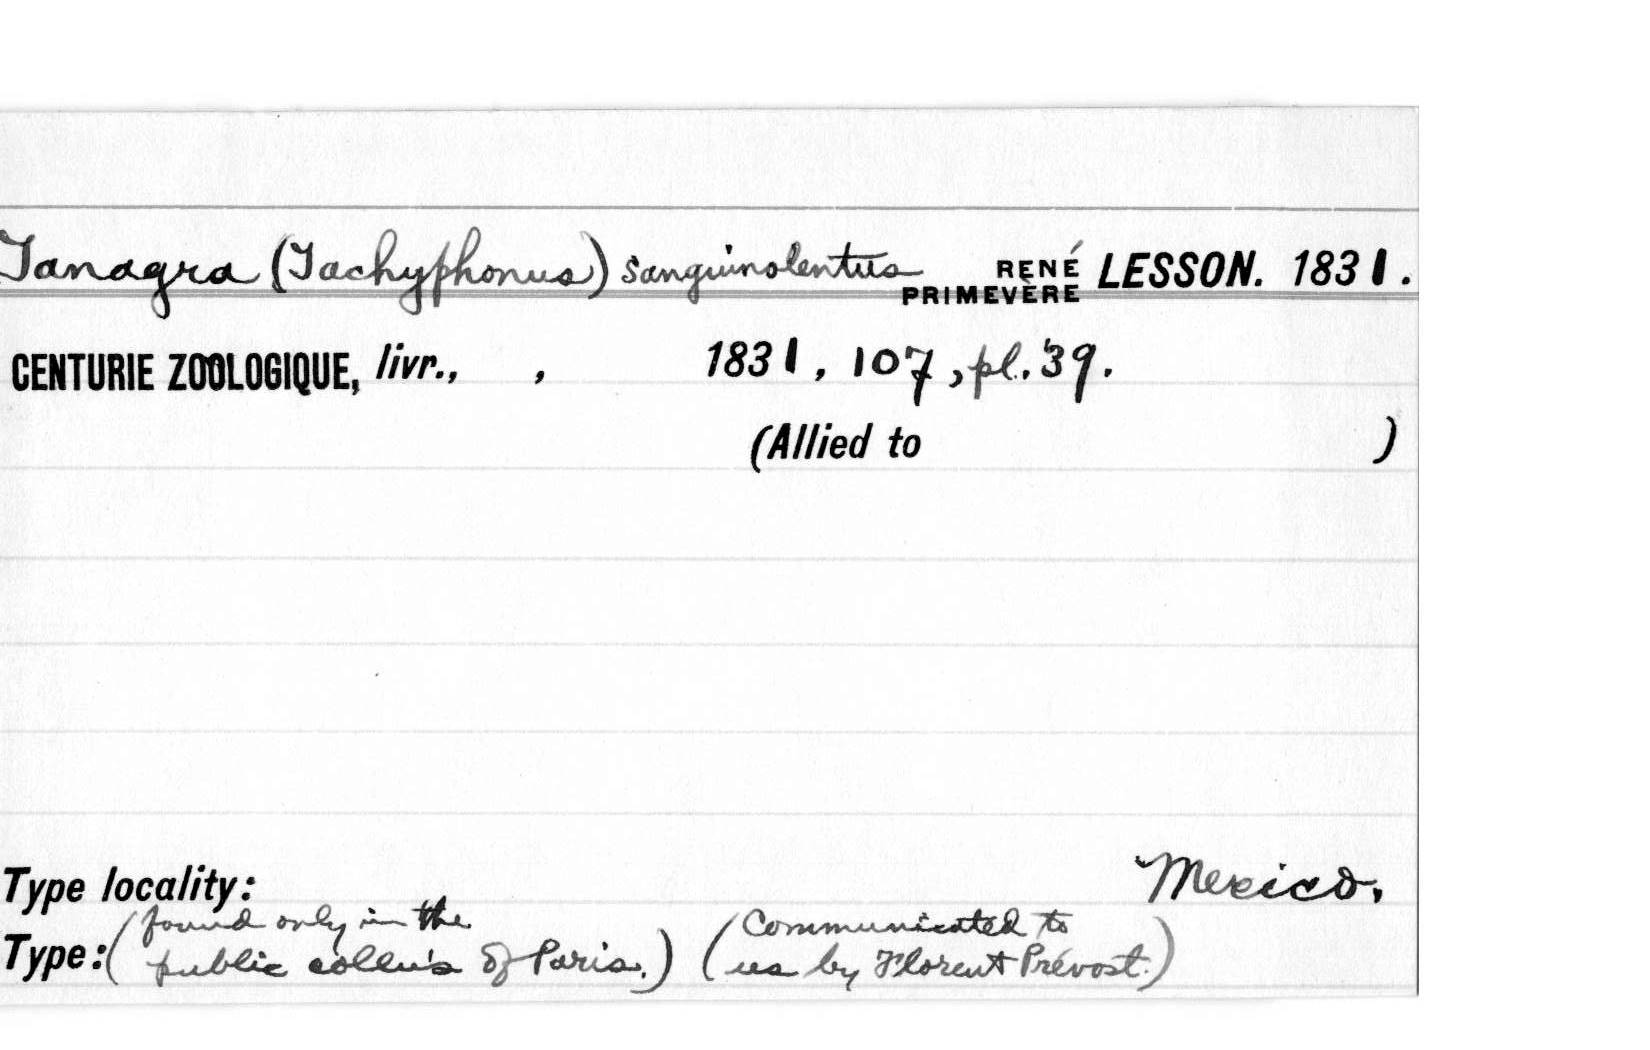 Tanagra (Tachyphonus) sanguinolentus RENÉ PRIMEVÈRE LESSON. 1831.
CENTURIE ZOOLOGIQUE, livr., , 1831, 107, pl. 39.
(Allied to )
Type locality: Mexico.
Type: (found only in the public coll'ns of Paris.) (Communicated to us by Florent Prévost.)